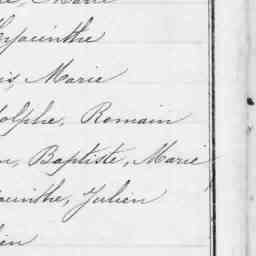 Marie
Hyacinthe
is, Marie
dolphe, Romain
n, Baptiste, Marie
acinthe, Julien
ien